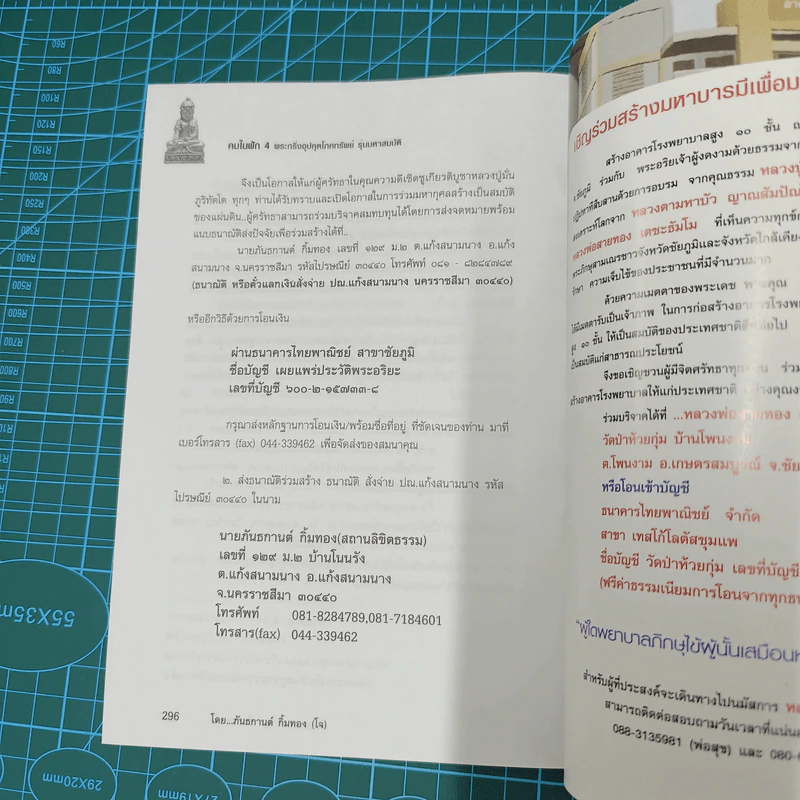 คมในฝัก 4 พระกริ่งอุปคุตโภคทรัพย์ รุ่นมหาสมบัติ
จึงเป็นโอกาสให้แก่ผู้ศรัทธาในคุณความดีเชิดชูเกียรติบูชาหลวงปู่มั่น
ภูริทัตโต ทุกๆ ท่านได้รับทราบและเปิดโอกาสในการร่วมมหากุศลสร้างเป็นสมบัติ
ของแผ่นดิน..ผู้ศรัทธาสามารถร่วมบริจาคสมทบทุนได้โดยการส่งจดหมายพร้อม
แนบธนาณัติส่งปัจจัยเพื่อร่วมสร้างได้ที่..
นายภันธกานต์ กิ้มทอง เลขที่ ๑๒๙ ม.๒ ต.แก้งสนามนาง อ.แก้ง
สนามนาง จ.นครราชสีมา รหัสไปรษณีย์ ๓๐๔๔๐ โทรศัพท์ ๐๘๑ - ๘๒๘๔๗๘๙
(ธนาณัติ หรือตั๋วแลกเงินสั่งจ่าย ปณ.แก้งสนามนาง นครราชสีมา ๓๐๔๔๐)
หรืออีกวิธีด้วยการโอนเงิน
ผ่านธนาคารไทยพาณิชย์ สาขาชัยภูมิ
ชื่อบัญชี เผยแพร่ประวัติพระอริยะ
เลขที่บัญชี ๖๐๐-๒-๑๕๗๓๓-๘
กรุณาส่งหลักฐานการโอนเงิน/พร้อมชื่อที่อยู่ ที่ชัดเจนของท่าน มาที่
เบอร์โทรสาร (fax) 044-339462 เพื่อจัดส่งของสมนาคุณ
๒. ส่งธนาณัติร่วมสร้าง ธนาณัติ สั่งจ่าย ปณ.แก้งสนามนาง รหัส
ไปรษณีย์ ๓๐๔๔๐ ในนาม
นายภันธกานต์ กิ้มทอง(สถานลิขิตธรรม)
เลขที่ ๑๒๙ ม.๒ บ้านโนนรัง
ต.แก้งสนามนาง อ.แก้งสนามนาง
จ.นครราชสีมา ๓๐๔๔๐
โทรศัพท์ 081-8284789,081-7184601
โทรสาร(fax) 044-339462
296 โดย...ภันธกานต์ กิ้มทอง (โจ)
เชิญร่วมสร้างมหาบารมีเพื่อม
สร้างอาคารโรงพยาบาลสูง ๑๐ ชั้น ณ
ชัยภูมิ ร่วมกับ พระอริยเจ้าผู้งดงามด้วยธรรมจาก
ปฏิปทาที่สืบสานด้วยการอบรม จากคุณธรรม หลวงปู่
สงเคราะห์โลกจาก หลวงตามหาบัว ญาณสัมปัณ
หลวงพ่อสายทอง เตชะธัมโม ที่เห็นความทุกข์
พระภิกษุสามเณรชาวจังหวัดชัยภูมิและจังหวัดใกล้เคียง
รักษา ความเจ็บไข้ของประชาชนที่มีจำนวนมาก
ด้วยความเมตตาของพระเดช พระคุณ
ได้มีเมตตารับเป็นเจ้าภาพ ในการก่อสร้างอาคารโรงพ
สูง ๑๐ ชั้น ให้เป็นสมบัติของประเทศชาติ
เป็นสมบัติแก่สาธารณประโยชน์
จึงขอเชิญชวนผู้มีจิตศรัทธาทุก ร่วม
สร้างอาคารโรงพยาบาลให้แก่ประเทศชาติ
ร่วมบริจาคได้ที่ ...หลวงพ่อสายทอง
วัดป่าห้วยกุ่ม บ้านโพนงาม
ต.โพนงาม อ.เกษตรสมบูรณ์ จ.ชัย
หรือโอนเข้าบัญชี
ธนาคารไทยพาณิชย์ จำกัด
สาขา เทสโก้โลตัสชุมแพ
ชื่อบัญชี วัดป่าห้วยกุ่ม เลขที่บัญชี
(ฟรีค่าธรรมเนียมการโอนจากทุกธน
"ผู้ใดพยาบาลภิกษุไข้ผู้นั้นเสมือน
สำหรับผู้ที่ประสงค์จะเดินทางไปนมัสการ
สามารถติดต่อสอบถามวันเวลาที่แน่น
088-3135981 (พ่อสุข) และ 080-
55X35mm
29X20mm
27X19mm
R60
R80
R100
R120
R150
R200
R250
R300
R350